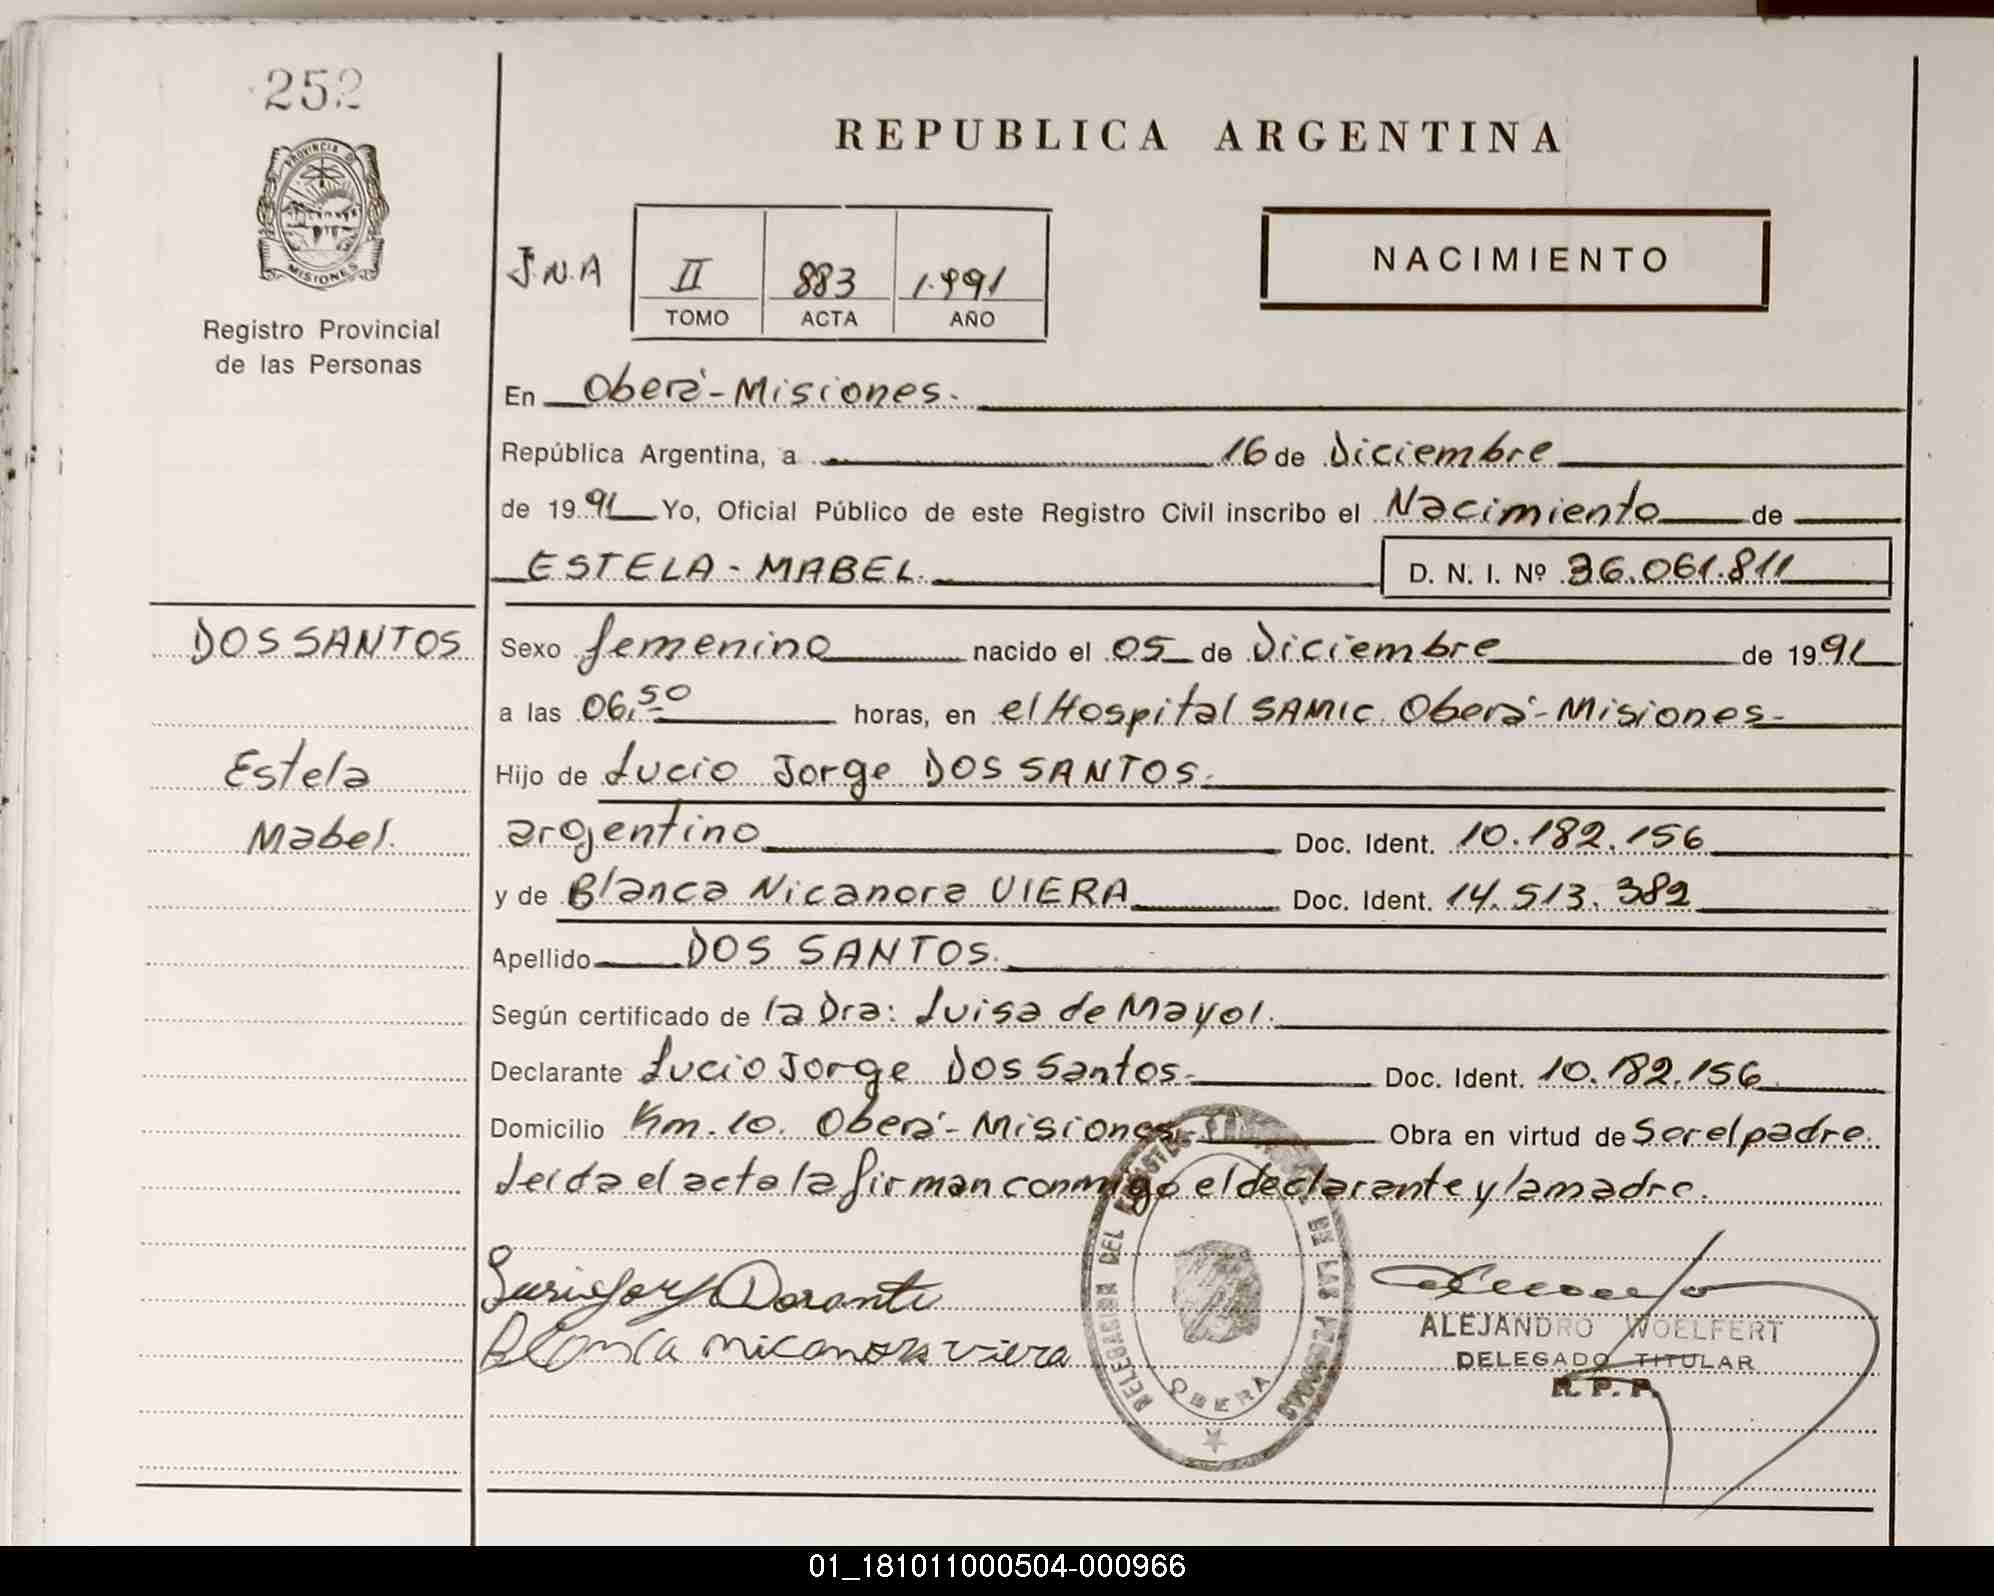 252
PROVINCIA DE
MISIONES
Registro Provincial
de las Personas
REPUBLICA ARGENTINA
J.N.A
II 883 1.991
TOMO ACTA AÑO
NACIMIENTO
En Oberá-Misiones.
República Argentina, a 16 de Diciembre
de 1991 Yo, Oficial Público de este Registro Civil inscribo el Nacimiento de
ESTELA-MABEL. D. N. I. Nº 36.061.811
DOS SANTOS
Estela
Mabel.
Sexo femenino nacido el 05 de Diciembre de 1991
a las 06,50 horas, en el Hospital SAMIC. Oberá-Misiones-
Hijo de Lucio Jorge DOS SANTOS.
argentino Doc. Ident. 10.182.156
y de Blanca Nicanora VIERA Doc. Ident. 14.513.382
Apellido DOS SANTOS.
Según certificado de la Dra: Luisa de Mayol.
Declarante Lucio Jorge Dos Santos- Doc. Ident. 10.182.156
Domicilio Km.10. Oberá-Misiones- Obra en virtud de Ser el padre.
Leída el acta la firman conmigo el declarante y la madre.
Blanca nicanora viera
DELEGACION DEL DE LAS PERSONAS
OBERA
ALEJANDRO WOELFERT
DELEGADO TITULAR
R. P. P.
01_181011000504-000966